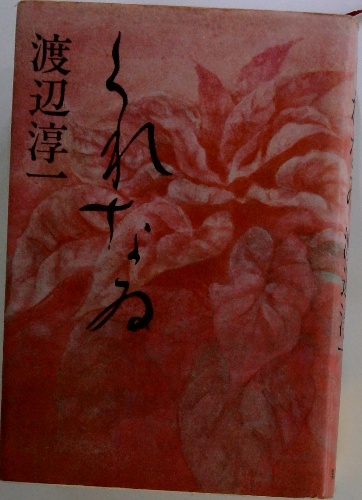 くれなゐ
渡辺淳一